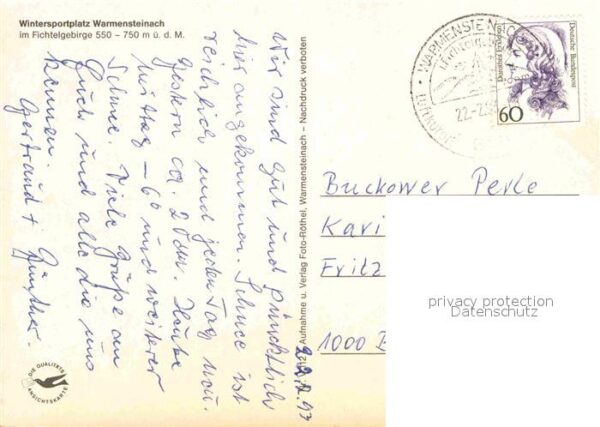 Wintersportplatz Warmensteinach
im Fichtelgebirge 550 – 750 m ü. d. M.
22.2.93
Wir sind gut und pünktlich
hier angekommen. Schnee ist
reichlich und jeden Tag neu.
Gestern ca 20 cm. Heute
mittag – 6° und weiterer
Schnee. Viele Grüße an
Euch und alle die uns
kennen.
Gertraud + Günther
Aufnahme u. Verlag Foto-Röthel, Warmensteinach – Nachdruck verboten
DIE QUALITÄTS
ANSICHTSKARTE
WARMENSTEINACH
22.-2.
Dorothea Erxleben
Deutsche Bundespost
60
Buckower Perle
Kari
Fritz
1000 B
privacy protection
Datenschutz